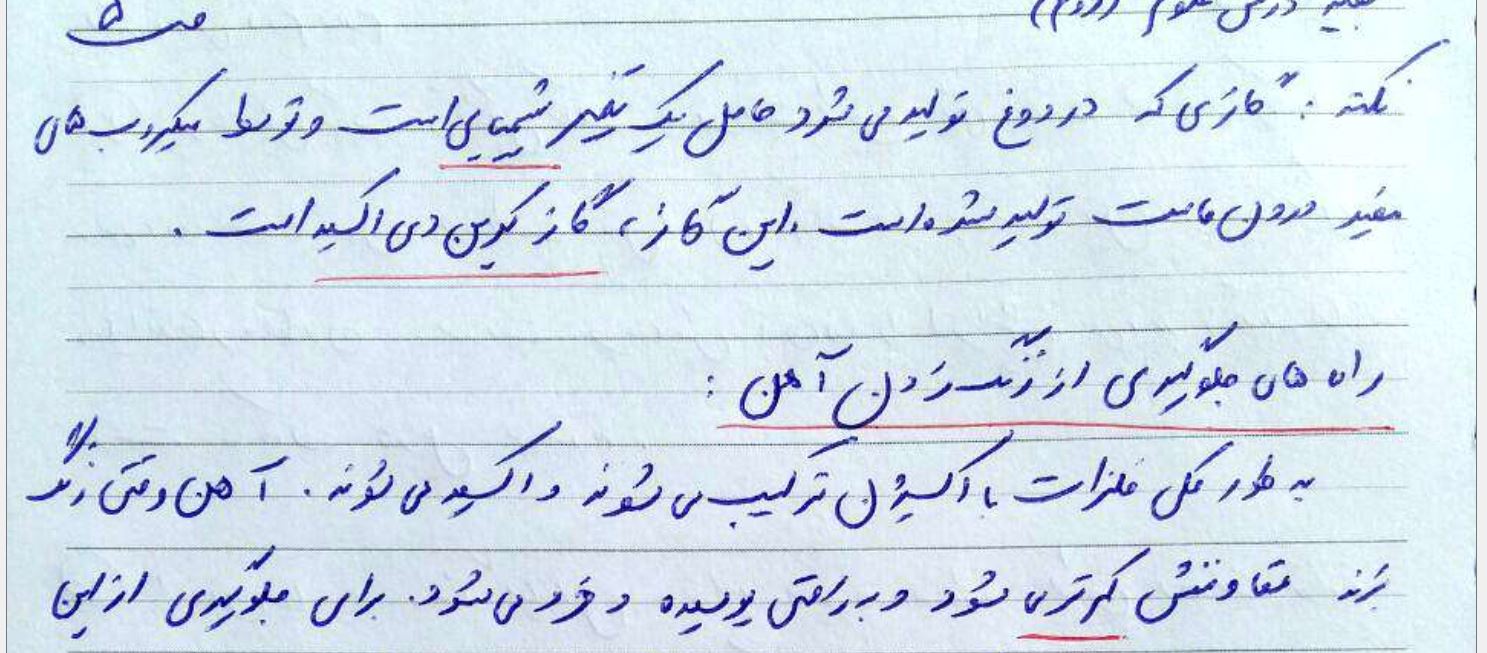 بقیه درس علوم (دوم) ص ۵
نکته : گازی که در دوغ تولید می شود حاصل یک تغییر شیمیایی است و توسط میکروب های
مفید درون ماست تولید شده است . این گاز ، گاز کربن دی اکسید است .
راه های جلوگیری از زنگ زدن آهن :
به طور کلی فلزات با اکسیژن ترکیب می شوند و اکسید می شوند . آهن وقتی زنگ
بزند مقاومتش کم تر می شود و به راحتی پوسیده و خرد می شود . برای جلوگیری از این